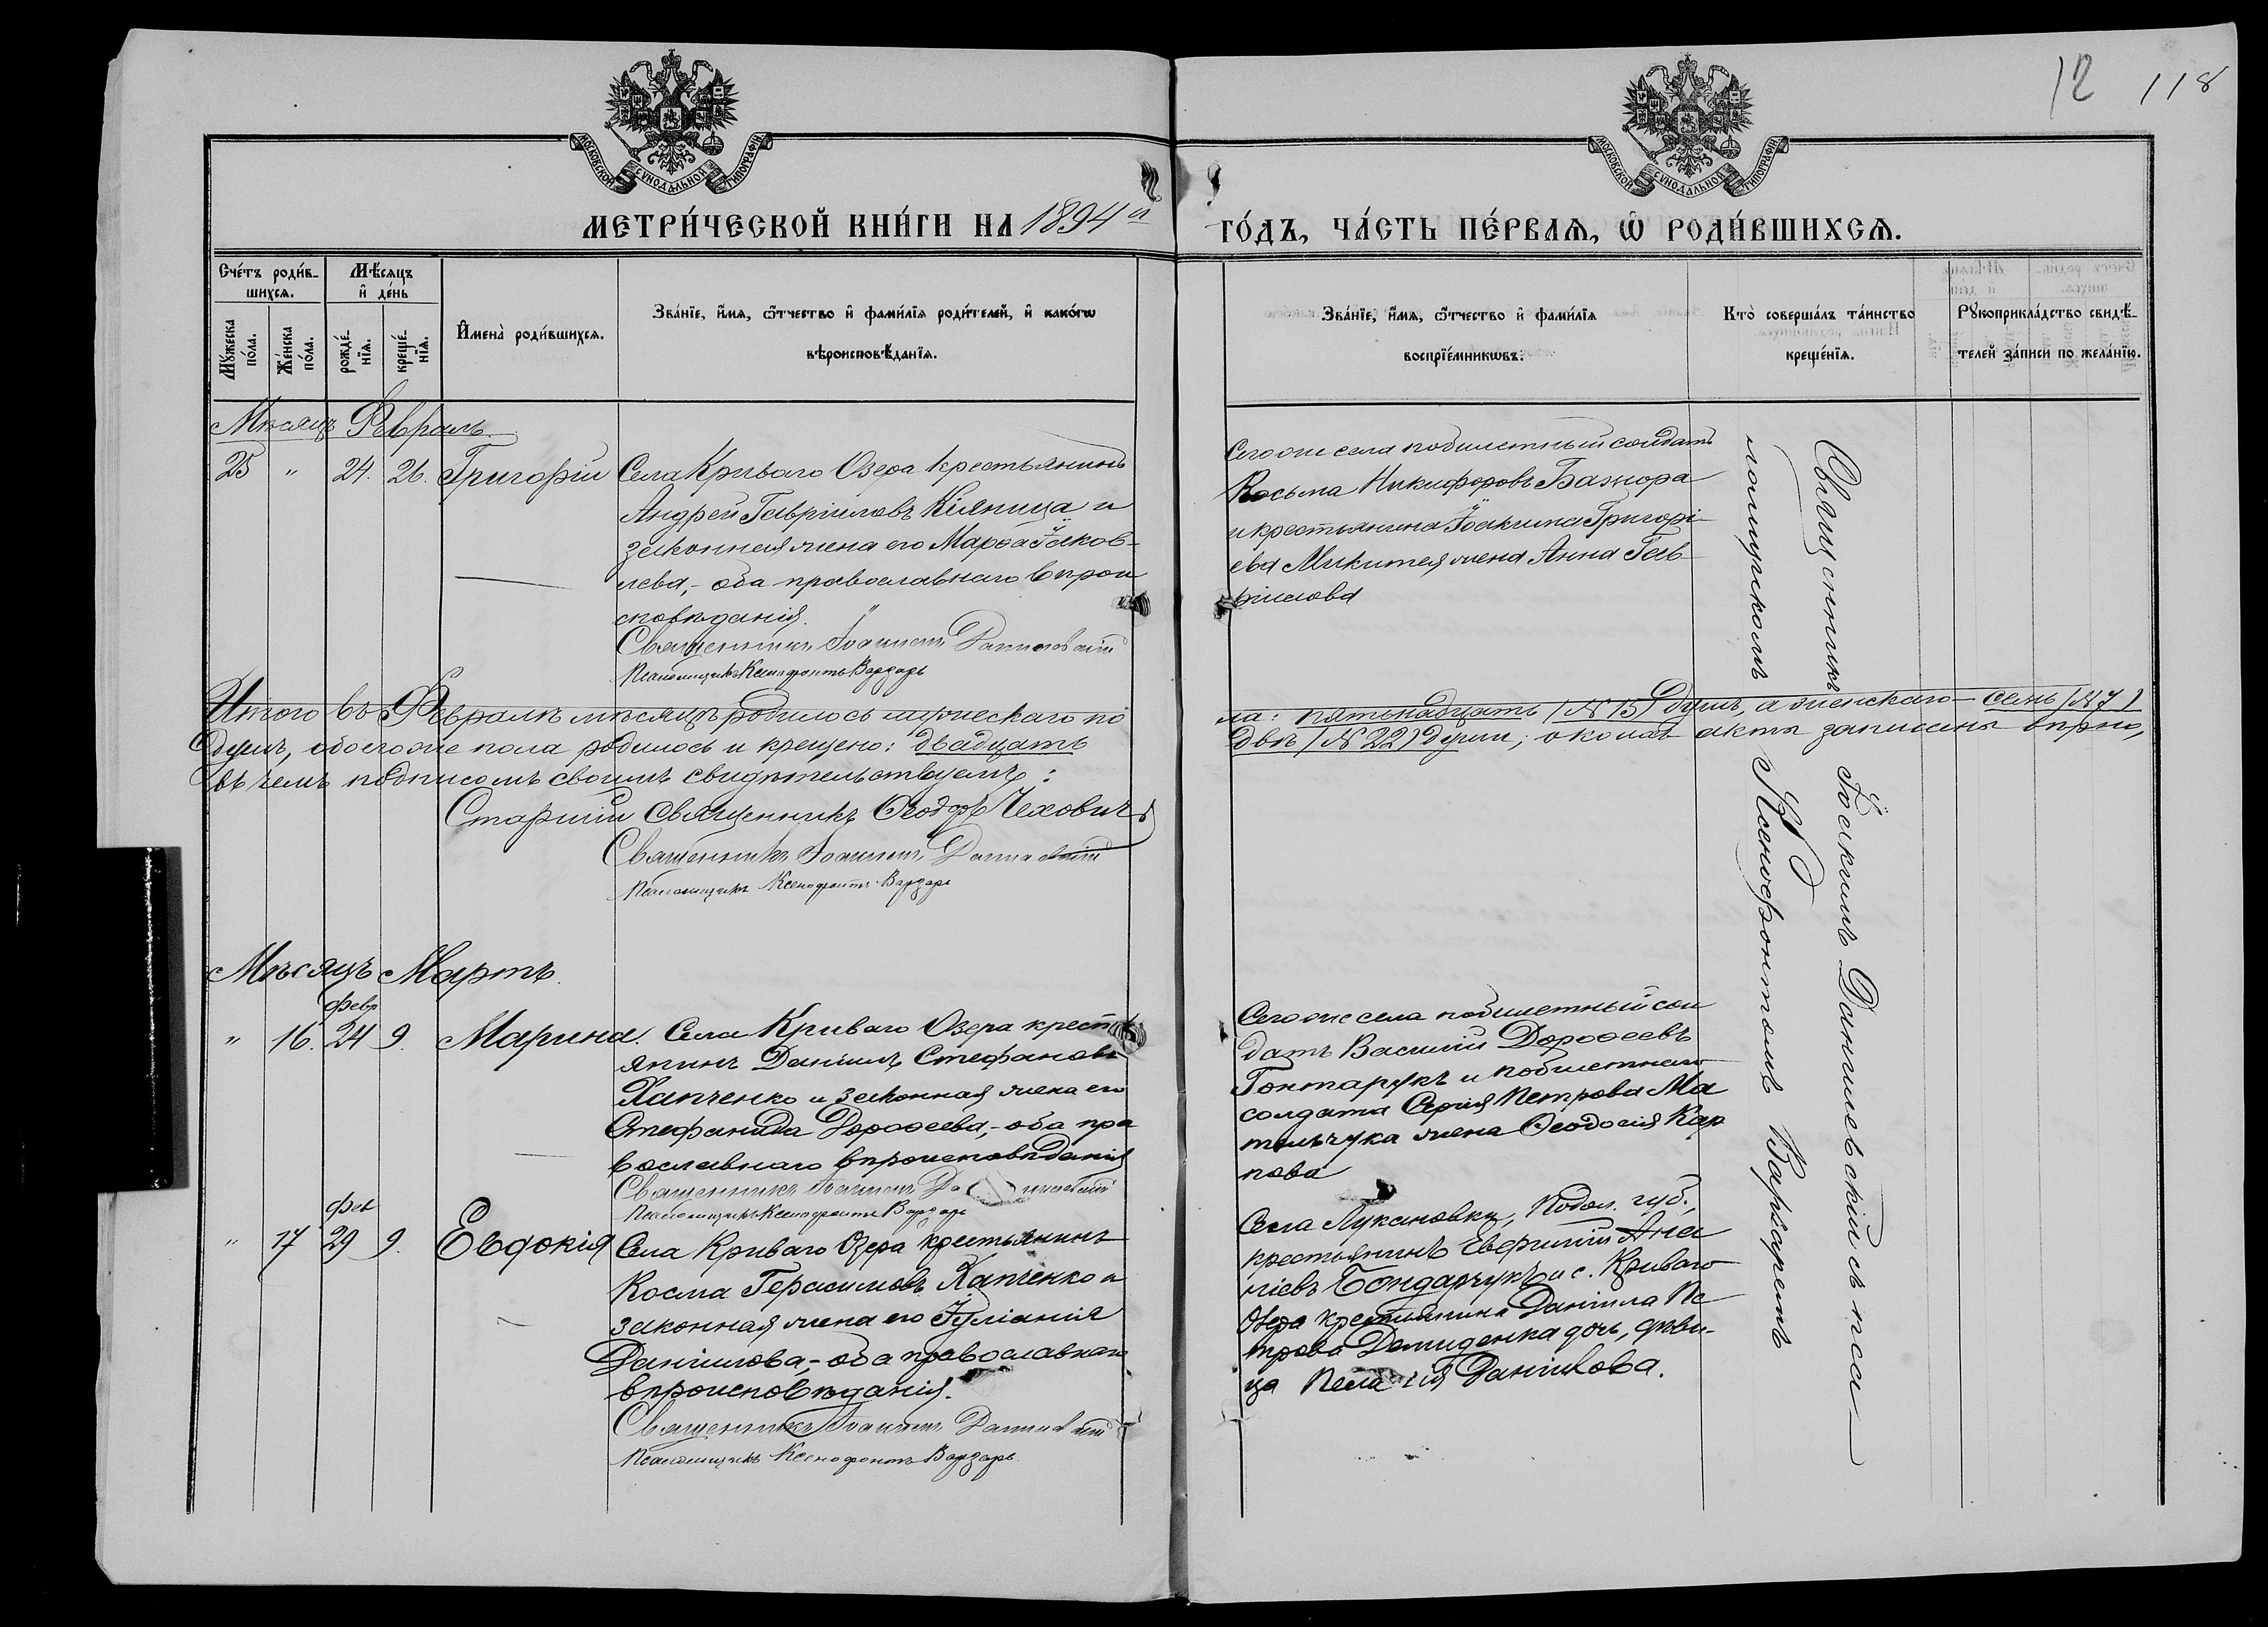 12 118
МОСКОВСКОЙ СѴНОДАЛЬНОЙ ТИПОГРАФІИ
МОСКОВСКОЙ СѴНОДАЛЬНОЙ ТИПОГРАФІИ
МЕТРИ́ЧЕСКОЙ КНИ́ГИ НА 1894й
ГО́ДЪ, ЧА́СТЬ ПЕ́РВАѦ, Ѡ҆ РОДИ́ВШИХСѦ.
Сче́тъ роди́в-
шихсѧ.
Мꙋ́жеска
по́ла.
Же́нска
по́ла.
Мѣ́сѧцъ
и҆ де́нь
рожде́-
нїѧ.
креще́-
нїѧ.
И҆мена̀ роди́вшихсѧ.
Зва́нїе, и҆́мѧ, ѻ҆́тчество и҆ фами́лїѧ роди́телей, и҆ како́гѡ
вѣроисповѣ́данїѧ.
Зва́нїе, и҆́мѧ, ѻ҆́тчество и҆ фами́лїѧ
воспрїе́мникѡвъ.
Кто̀ соверша́лъ та́инство
креще́нїѧ.
Рꙋкоприкла́дство свидѣ́-
телей за́писи по жела́нїю.
Мѣсяцъ Февраль.
25 " 24. 26. Григорій
Села Криваго Озера крестьянинъ
Андрей Гавриловъ Кіяница и
законная жена его Марѳа Іаков-
лева,- оба православнаго вѣрои
сповѣданія.
Священникъ Іоакимъ Данилевскій
Псаломщикъ Ксенофонтъ Варзарь
Сегоже села побилетный солдатъ
Косьма Никифоровъ Бажора
и крестьянина Іоакима Григорі-
ева Микитея жена Анна Гав-
рилова
Итого въ Февралѣ мѣсяцѣ родилось мужескаго по
ла: пятнадцать /№ 15/ душъ, а женскаго - семь /№ 7/
душъ, обоегоже пола родилось и крещено: двадцать
двѣ /№ 22/ души; о коихъ акты записаны вѣрно,
въ чемъ подписомъ своимъ свидѣтельствуемъ:
Старшій Священникъ Ѳеодоръ Чеховичъ
Священникъ Іоакимъ Данилевскій
Псаломщикъ Ксенофонтъ Варзарь
Мѣсяцъ Мартъ.
февр
" 16. 24 9. Марина.
Села Криваго Озера крестъ
янинъ Даніилъ Стефановъ
Хапченко и законная жена его
Стефанида Дороѳеева,- оба пра
вославнаго вѣроисповѣданія
Священникъ Іоакимъ Данилевскій
Псаломщикъ Ксенофонтъ Варзарь
Сегоже села побилетный сол
датъ Василій Дороѳеевъ
Гонтарукъ и побилетнаго
солдата Сергія Петрова Ма
тельчука жена Ѳеодосія Кар
пова
фев
" 17 29 9. Евдокія
Села Криваго Озера крестьянинъ
Косма Герасимовъ Хапченко и
законная жена его Іуліанія
Даніилова,- оба православнаго
вѣроисповѣданія.
Священникъ Іоакимъ Данилевскій
Псаломщикъ Ксенофонтъ Варзарь
Села Лукановки, Подол. губ.,
крестьянинъ Евфимій
Бондарчукъ и с. Криваго
Озера крестьянина Даніила Пе
трова Демиденка дочь, дѣви-
ца Пелагія Даніилова.
Священникъ Іоакимъ Данилевскій съ пса-
ломщикомъ Ксенофонтомъ Варзаремъ